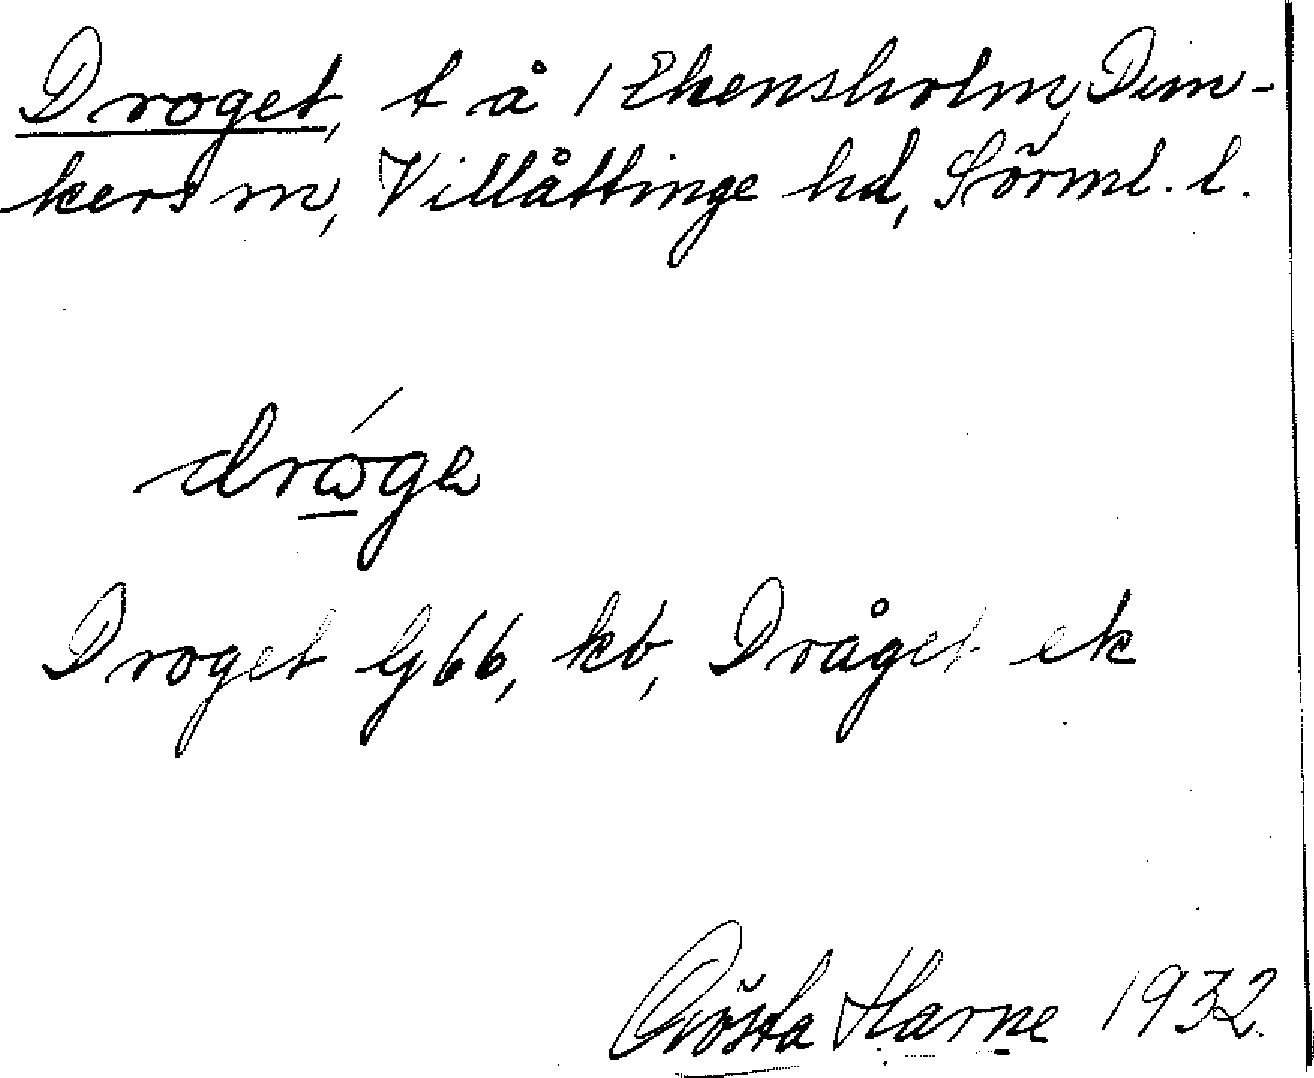 Droget, t å 1 Ekensholm, Dun-
kers sn, Villåttinge hd, Sörml. l.
dróge
Droget G66, kb, Dråget ek
Gösta Harne 1932.